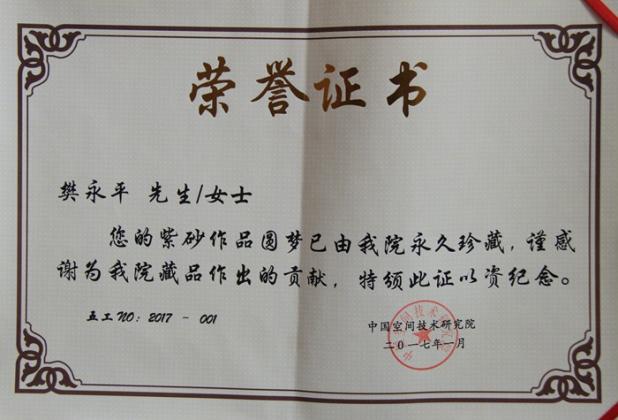 荣誉证书
樊永平 先生/女士
您的紫砂作品圆梦已由我院永久珍藏，谨感
谢为我院藏品作出的贡献，特颁此证以资纪念。
五工NO：2017 - 001
中国空间技术研究院
二〇一七年一月